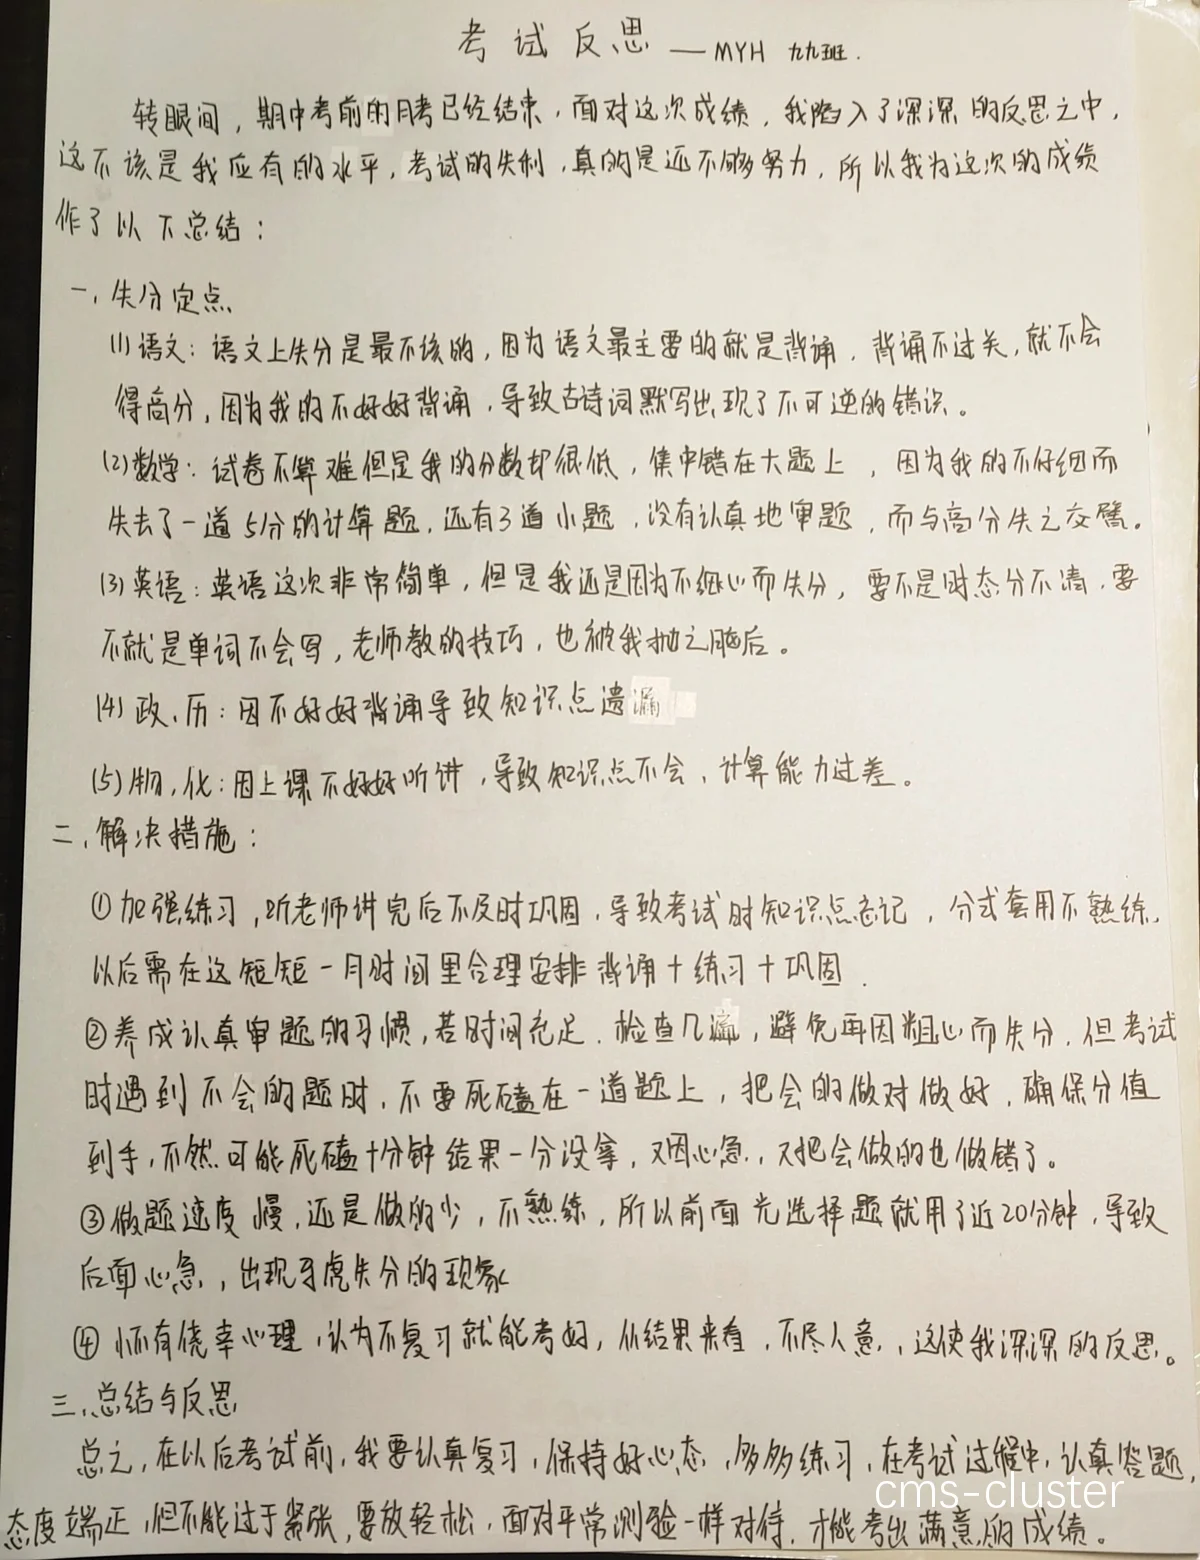 考试反思 — MYH 九九班.
转眼间，期中考前的月考已经结束，面对这次成绩，我陷入了深深的反思之中，
这不该是我应有的水平，考试的失利，真的是还不够努力，所以我为这次的成绩
作了以下总结：
一、失分定点
(1)语文：语文上失分是最不该的，因为语文最主要的就是背诵，背诵不过关，就不会
得高分，因为我的不好好背诵，导致古诗词默写出现了不可逆的错误。
(2)数学：试卷不算难但是我的分数却很低，集中错在大题上，因为我的不仔细而
失去了一道5分的计算题，还有3道小题，没有认真地审题，而与高分失之交臂。
(3)英语：英语这次非常简单，但是我还是因为不细心而失分，要不是时态分不清，要
不就是单词不会写，老师教的技巧，也被我抛之脑后。
(4)政、历：因不好好背诵导致知识点遗漏
(5)物，化：因上课不好好听讲，导致知识点不会，计算能力过差。
二、解决措施：
①加强练习，听老师讲完后不及时巩固，导致考试时知识点忘记，公式套用不熟练，
以后需在这短短一月时间里合理安排背诵+练习+巩固.
②养成认真审题的习惯，若时间充足，检查几遍，避免再因粗心而失分，但考试
时遇到不会的题时，不要死磕在一道题上，把会的做对做好，确保分值
到手，不然可能死磕十分钟结果一分没拿，又因心急，又把会做的也做错了。
③做题速度慢，还是做的少，不熟练，所以前面光选择题就用了近20分钟，导致
后面心急，出现马虎失分的现象
④怀有侥幸心理，认为不复习就能考好，从结果来看，不尽人意，这使我深深的反思。
三、总结与反思
总之，在以后考试前，我要认真复习，保持好心态，多多练习，在考试过程中，认真答题，
态度端正，但不能过于紧张，要放轻松，面对平常测验一样对待，才能考出满意的成绩。
cms-cluster